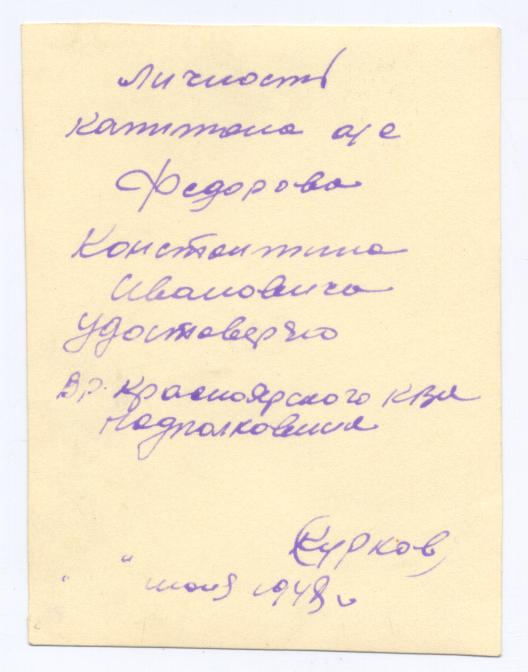 Личность
капитана а/с
Федорова
Константина
Ивановича
Удостоверяю
Вр. Красноярского КВЯ
Подполковник
Курков
" " июня 1948 г.